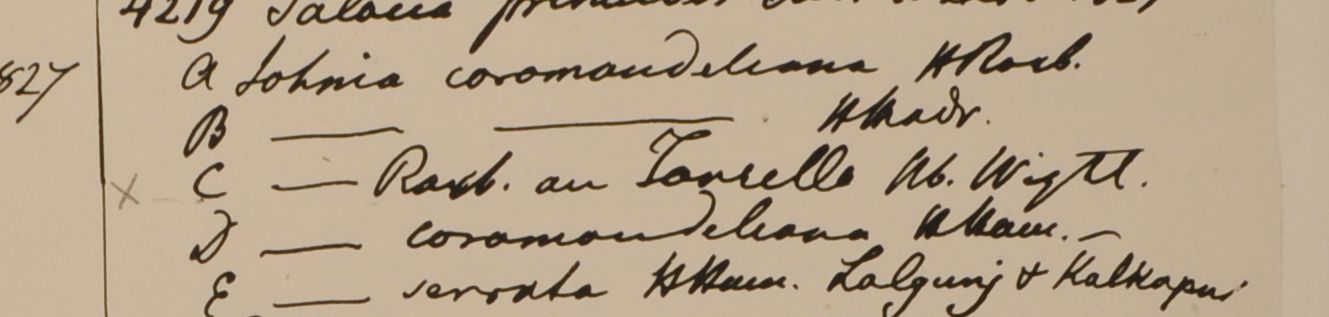 4219 Salacia prinoides
827 A Johnia coromandeliana HRoxb.
B — — HMadr.
X C — Roxb. an Tonsella Hb. Wight.
D — coromandeliana HHam. —
E — serrata HHam. Lalgunj & Kalkapur